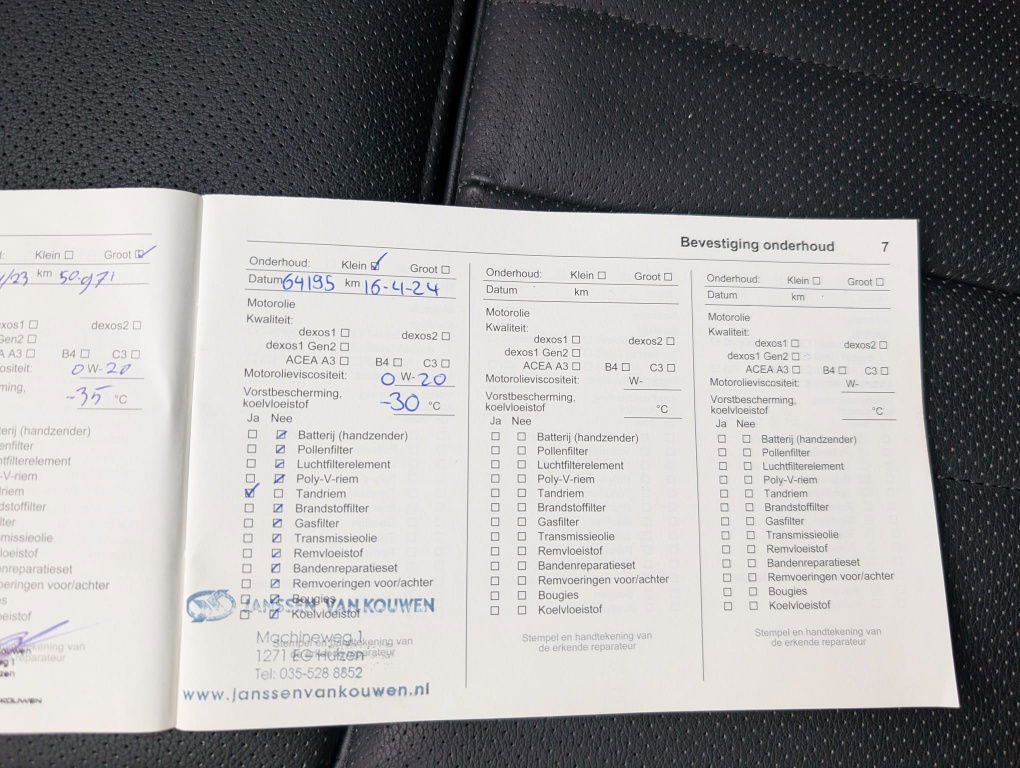 Klein ☐ Groot ☑
/23 km 50.971
dexos2 ☐
Gen2 ☐
A3 ☐ B4 ☐ C3 ☐
0 W-20
-35 °C
(handzender)
Bevestiging onderhoud 7
Onderhoud: Klein ☑ Groot ☐
Datum 64195 km 16-4-24
Motorolie
Kwaliteit:
dexos1 ☐ dexos2 ☐
dexos1 Gen2 ☐
ACEA A3 ☐ B4 ☐ C3 ☐
Motorolieviscositeit: 0 W-20
Vorstbescherming,
koelvloeistof -30 °C
Ja Nee
☐ ☑ Batterij (handzender)
☐ ☑ Pollenfilter
☐ ☑ Luchtfilterelement
☐ ☑ Poly-V-riem
☑ ☐ Tandriem
☐ ☑ Brandstoffilter
☐ ☑ Gasfilter
☐ ☑ Transmissieolie
☐ ☑ Remvloeistof
☐ ☑ Bandenreparatieset
☐ ☑ Remvoeringen voor/achter
☐ ☑ Bougies
☐ ☑ Koelvloeistof
JANSSEN VAN KOUWEN
Machineweg 1
1271 EG Huizen
Tel: 035-528 8852
www.janssenvankouwen.nl
Stempel en handtekening van
de erkende reparateur
Onderhoud: Klein ☐ Groot ☐
Datum km
Motorolie
Kwaliteit:
dexos1 ☐ dexos2 ☐
dexos1 Gen2 ☐
ACEA A3 ☐ B4 ☐ C3 ☐
Motorolieviscositeit: W-
Vorstbescherming,
koelvloeistof °C
Ja Nee
☐ ☐ Batterij (handzender)
☐ ☐ Pollenfilter
☐ ☐ Luchtfilterelement
☐ ☐ Poly-V-riem
☐ ☐ Tandriem
☐ ☐ Brandstoffilter
☐ ☐ Gasfilter
☐ ☐ Transmissieolie
☐ ☐ Remvloeistof
☐ ☐ Bandenreparatieset
☐ ☐ Remvoeringen voor/achter
☐ ☐ Bougies
☐ ☐ Koelvloeistof
Stempel en handtekening van
de erkende reparateur
Onderhoud: Klein ☐ Groot ☐
Datum km
Motorolie
Kwaliteit:
dexos1 ☐ dexos2 ☐
dexos1 Gen2 ☐
ACEA A3 ☐ B4 ☐ C3 ☐
Motorolieviscositeit: W-
Vorstbescherming,
koelvloeistof °C
Ja Nee
☐ ☐ Batterij (handzender)
☐ ☐ Pollenfilter
☐ ☐ Luchtfilterelement
☐ ☐ Poly-V-riem
☐ ☐ Tandriem
☐ ☐ Brandstoffilter
☐ ☐ Gasfilter
☐ ☐ Transmissieolie
☐ ☐ Remvloeistof
☐ ☐ Bandenreparatieset
☐ ☐ Remvoeringen voor/achter
☐ ☐ Bougies
☐ ☐ Koelvloeistof
Stempel en handtekening van
de erkende reparateur